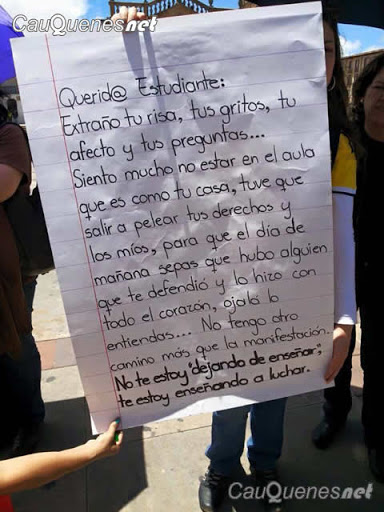 CauQuenesnet
CauQuenesnet
Querid@ Estudiante:
Extraño tu risa, tus gritos, tu
afecto y tus preguntas...
Siento mucho no estar en el aula
que es como tu casa, tuve que
salir a pelear tus derechos y
los míos, para que el día de
mañana sepas que hubo alguien
que te defendió y lo hizo con
todo el corazón, ojalá lo
entiendas... No tengo otro
camino más que la manifestación.
No te estoy "dejando de enseñar",
te estoy enseñando a luchar.
CauQuenesnet